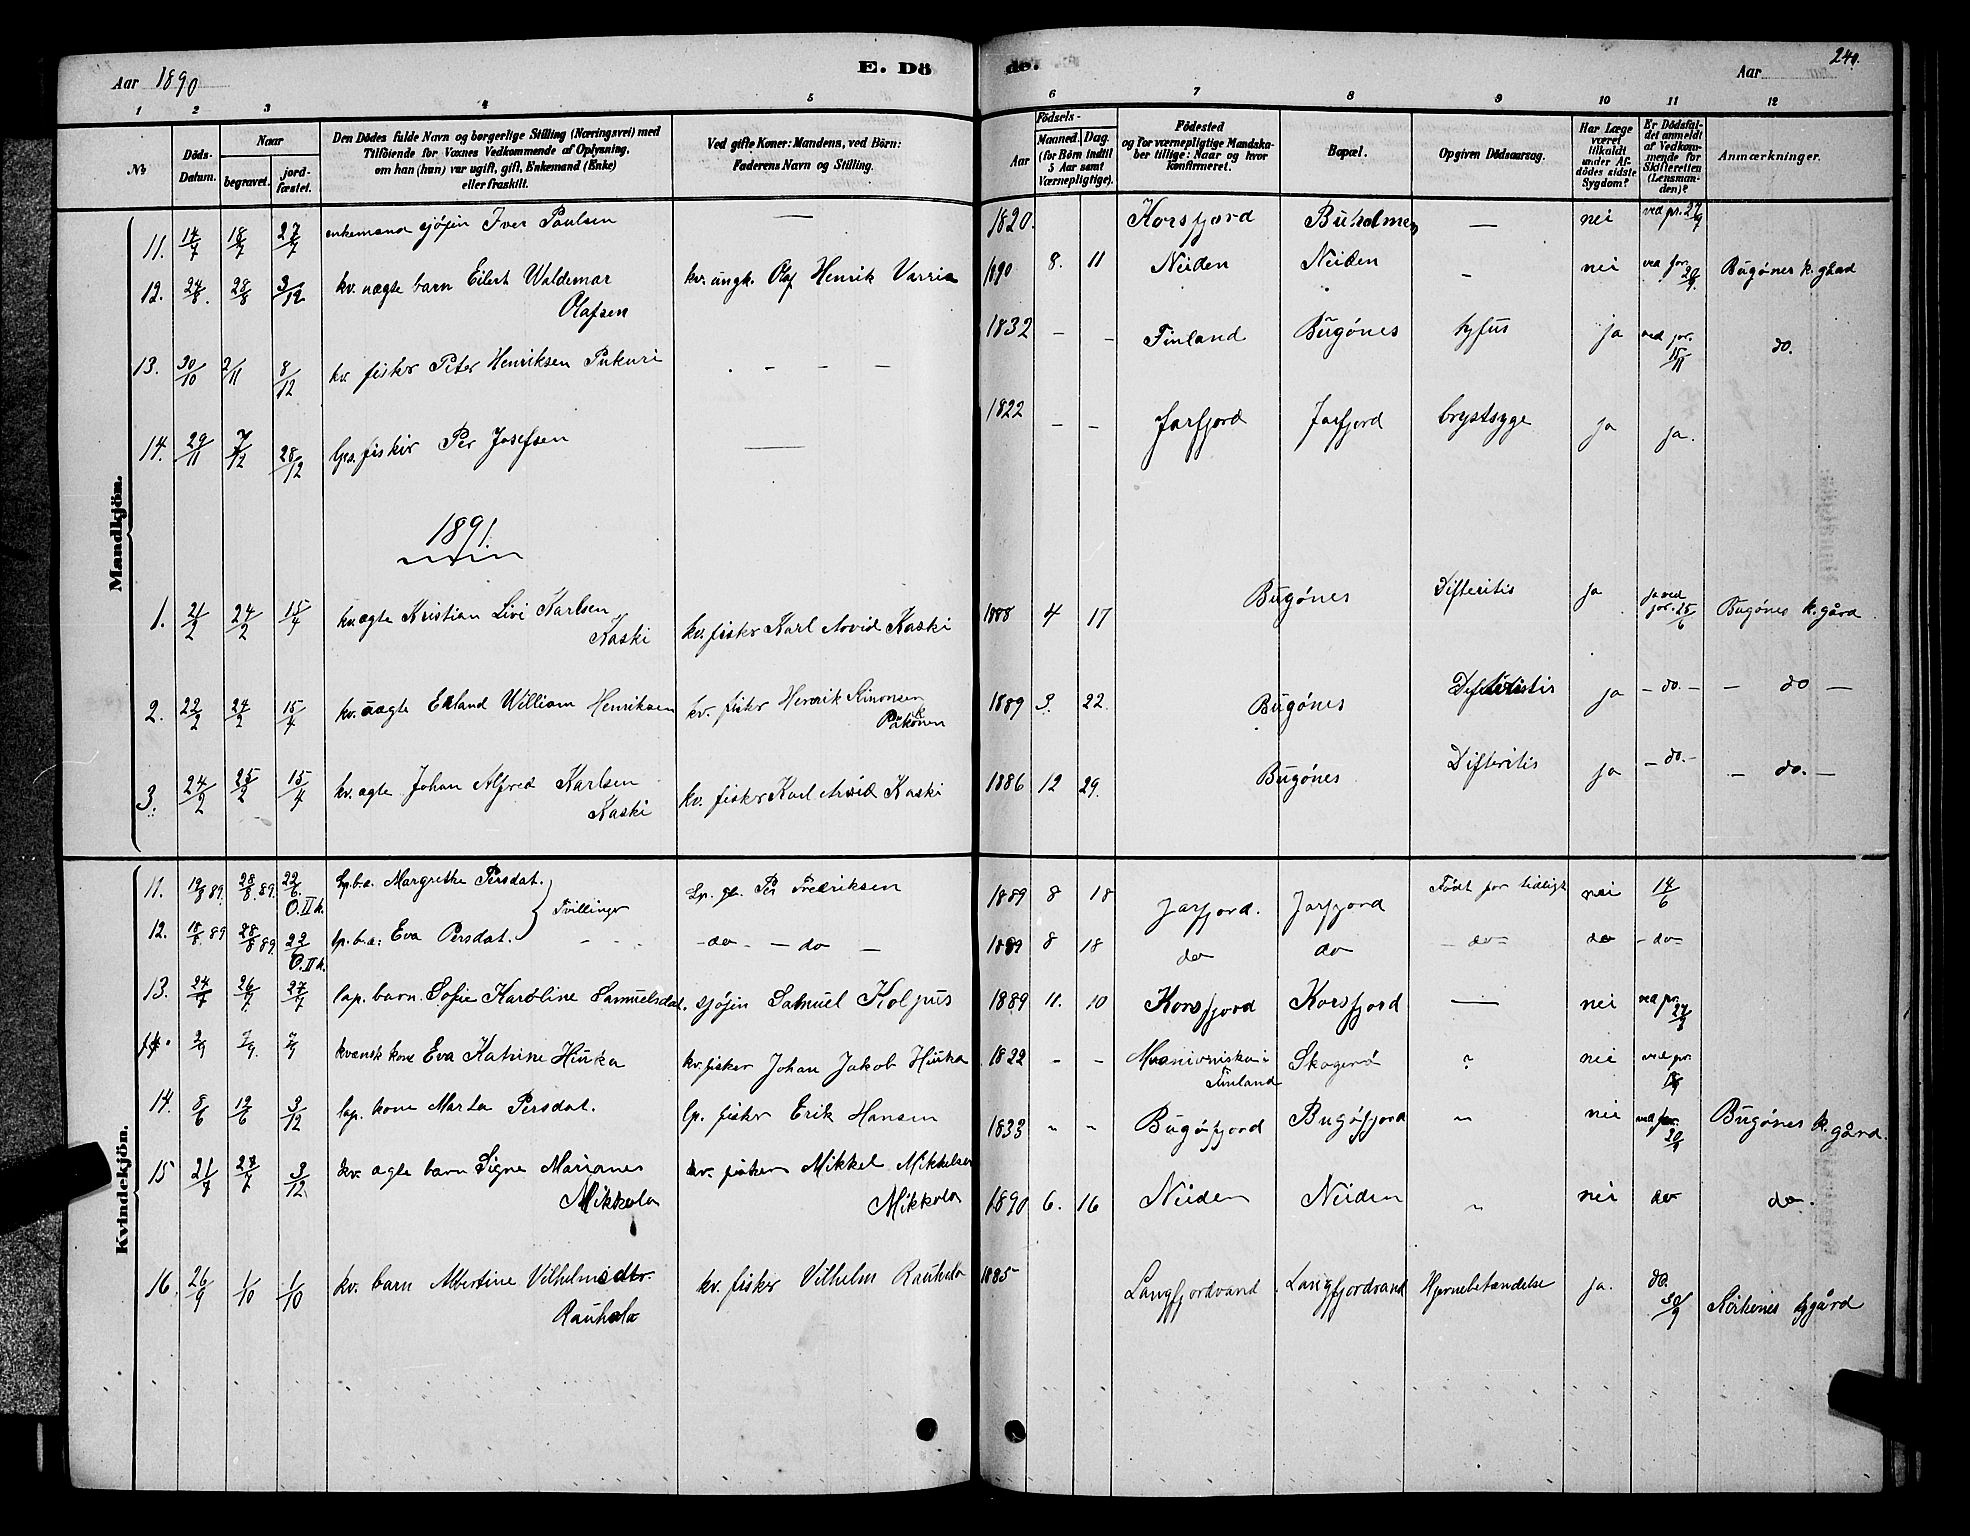 Aar 1890
E. Dö
de.
Aar
240.
1 2 3 4 5 6 7 8 9 10 11 12
No
Döds-Datum.
Naar
begravet.
jord-fæstet.
Den Dödes fulde Navn og borgerlige Stilling (Næringsvei) med
Tilföiende for Voxnes Vedkommende af Oplysning,
om han (hun) var ugift, gift, Enkemand (Enke)
eller fraskilt.
Ved gifte Koner: Mandens, ved Börn:
Faderens Navn og Stilling.
Födsels-
Aar
Maaned.
Dag.
(for Börn indtil
5 Aar samt
Værnepligtige).
Födested
og for værnepligtige Mandska-
ber tillige: Naar og hvor
konfirmeret.
Bopæl.
Opgiven Dödsaarsag.
Har Læge
været
tilkaldt
under Af-
dödes sidste
Sygdom?
Er Dödsfal-
det anmeldt
af Vedkom-
mende for
Skifteretten
(Lensman-
den)?
Anmærkninger.
Mandkjön.
11. 14/7 18/7 27/7 enkemand sjøfin Iver Paulsen — 1820. Korsfjord Buholmen — nei ved pr. 27/9
12. 24/8. 28/8 3/12 kv. uægte barn Eilert Waldemar Olafsen kv. ungk. Olaf Henrik Varria 1890 8. 11 Neiden Neiden - nei ved pr. 20/9 Bugønes k. gård
13. 30/10 2/11 8/12 kv. fisker Peter Henriksen Pukuri - - - - 1832 - - Finland Bugønes tyfus ja ved pr. 15/11 do.
14. 29/11 7/12 28/12 lps. fisker Per Josefsen — 1822 - - Jarfjord Jarfjord brystsyge ja ja.
1891.
1. 21/2 24/2 15/4 kv. ægte Kristian Livi Karlsen Kaski kv. fisker Karl Arvid Kaski 1888 4 17 Bugønes Difteritis ja ja ved pr. 25/6 Bugønes k. gård.
2. 22/2 24/2 15/4 kv. uægte Erland William Henriksen kv. fisker Henrik Simonsen 1889 3. 22. Bugønes Difteritis ja - do. - - do -
3. 24/2 25/2 15/4 kv. ægte Johan Alfred Karlsen Kaski kv. fisker Karl Arvid Kaski 1886 12 29. Bugønes Difteritis ja - do. - - do. -
Kvindekjön.
11. 19/8 89. 28/8. 89. 22/6. O.II k. Lp. b. æ. Margrethe Persdat. Tvillinger Lp. gl. Per Fredriksen 1889 8 18 Jarfjord. Jarfjord Født for tidligt nei 14/6
12. 18/8. 89 28/8 89. 22/6 O.II k. lp. b. æ: Eva Persdat. - - - - do - - do - 1889 8 18 do do - do - do - do -
13. 24/7 26/7. 27/7 lap. barn. Sofie Karoline Samuelsdat. sjøfin Samuel Kolpus 1889 11. 10 Korsfjord Korsfjord — nei ved pr. 27/9
3/9 7/9. 7/9 kvænsk kone Eva Katrine Hiuka kv. fisker Johan Jakob Hiuka 1822 - - Finland Skogerø " nei ved pr.
14. 8/6 12/6 3/12 lap. kone Marta Persdat. lp. fisker Erik Hansen 1833 " " Bugøfjord Bugøfjord " nei ved pr. 20/9 Bugønes k. gård.
15 21/7 27/7 3/12. kv. ægte barn Signe Marianes Mikkola kv. fisker Mikkel Mikkelsen Mikkola 1890 6. 16 Neiden Neiden " nei do do.
16. 26/9 1/10 1/10 kv. barn Albertine Vilhelmsdtr. Rauhala kv. fisker Vilhelm Rauhala 1885 Langfjordvand Langfjordvand Hjernebetændelse ja. do. 30/9 Kirkenes k gård